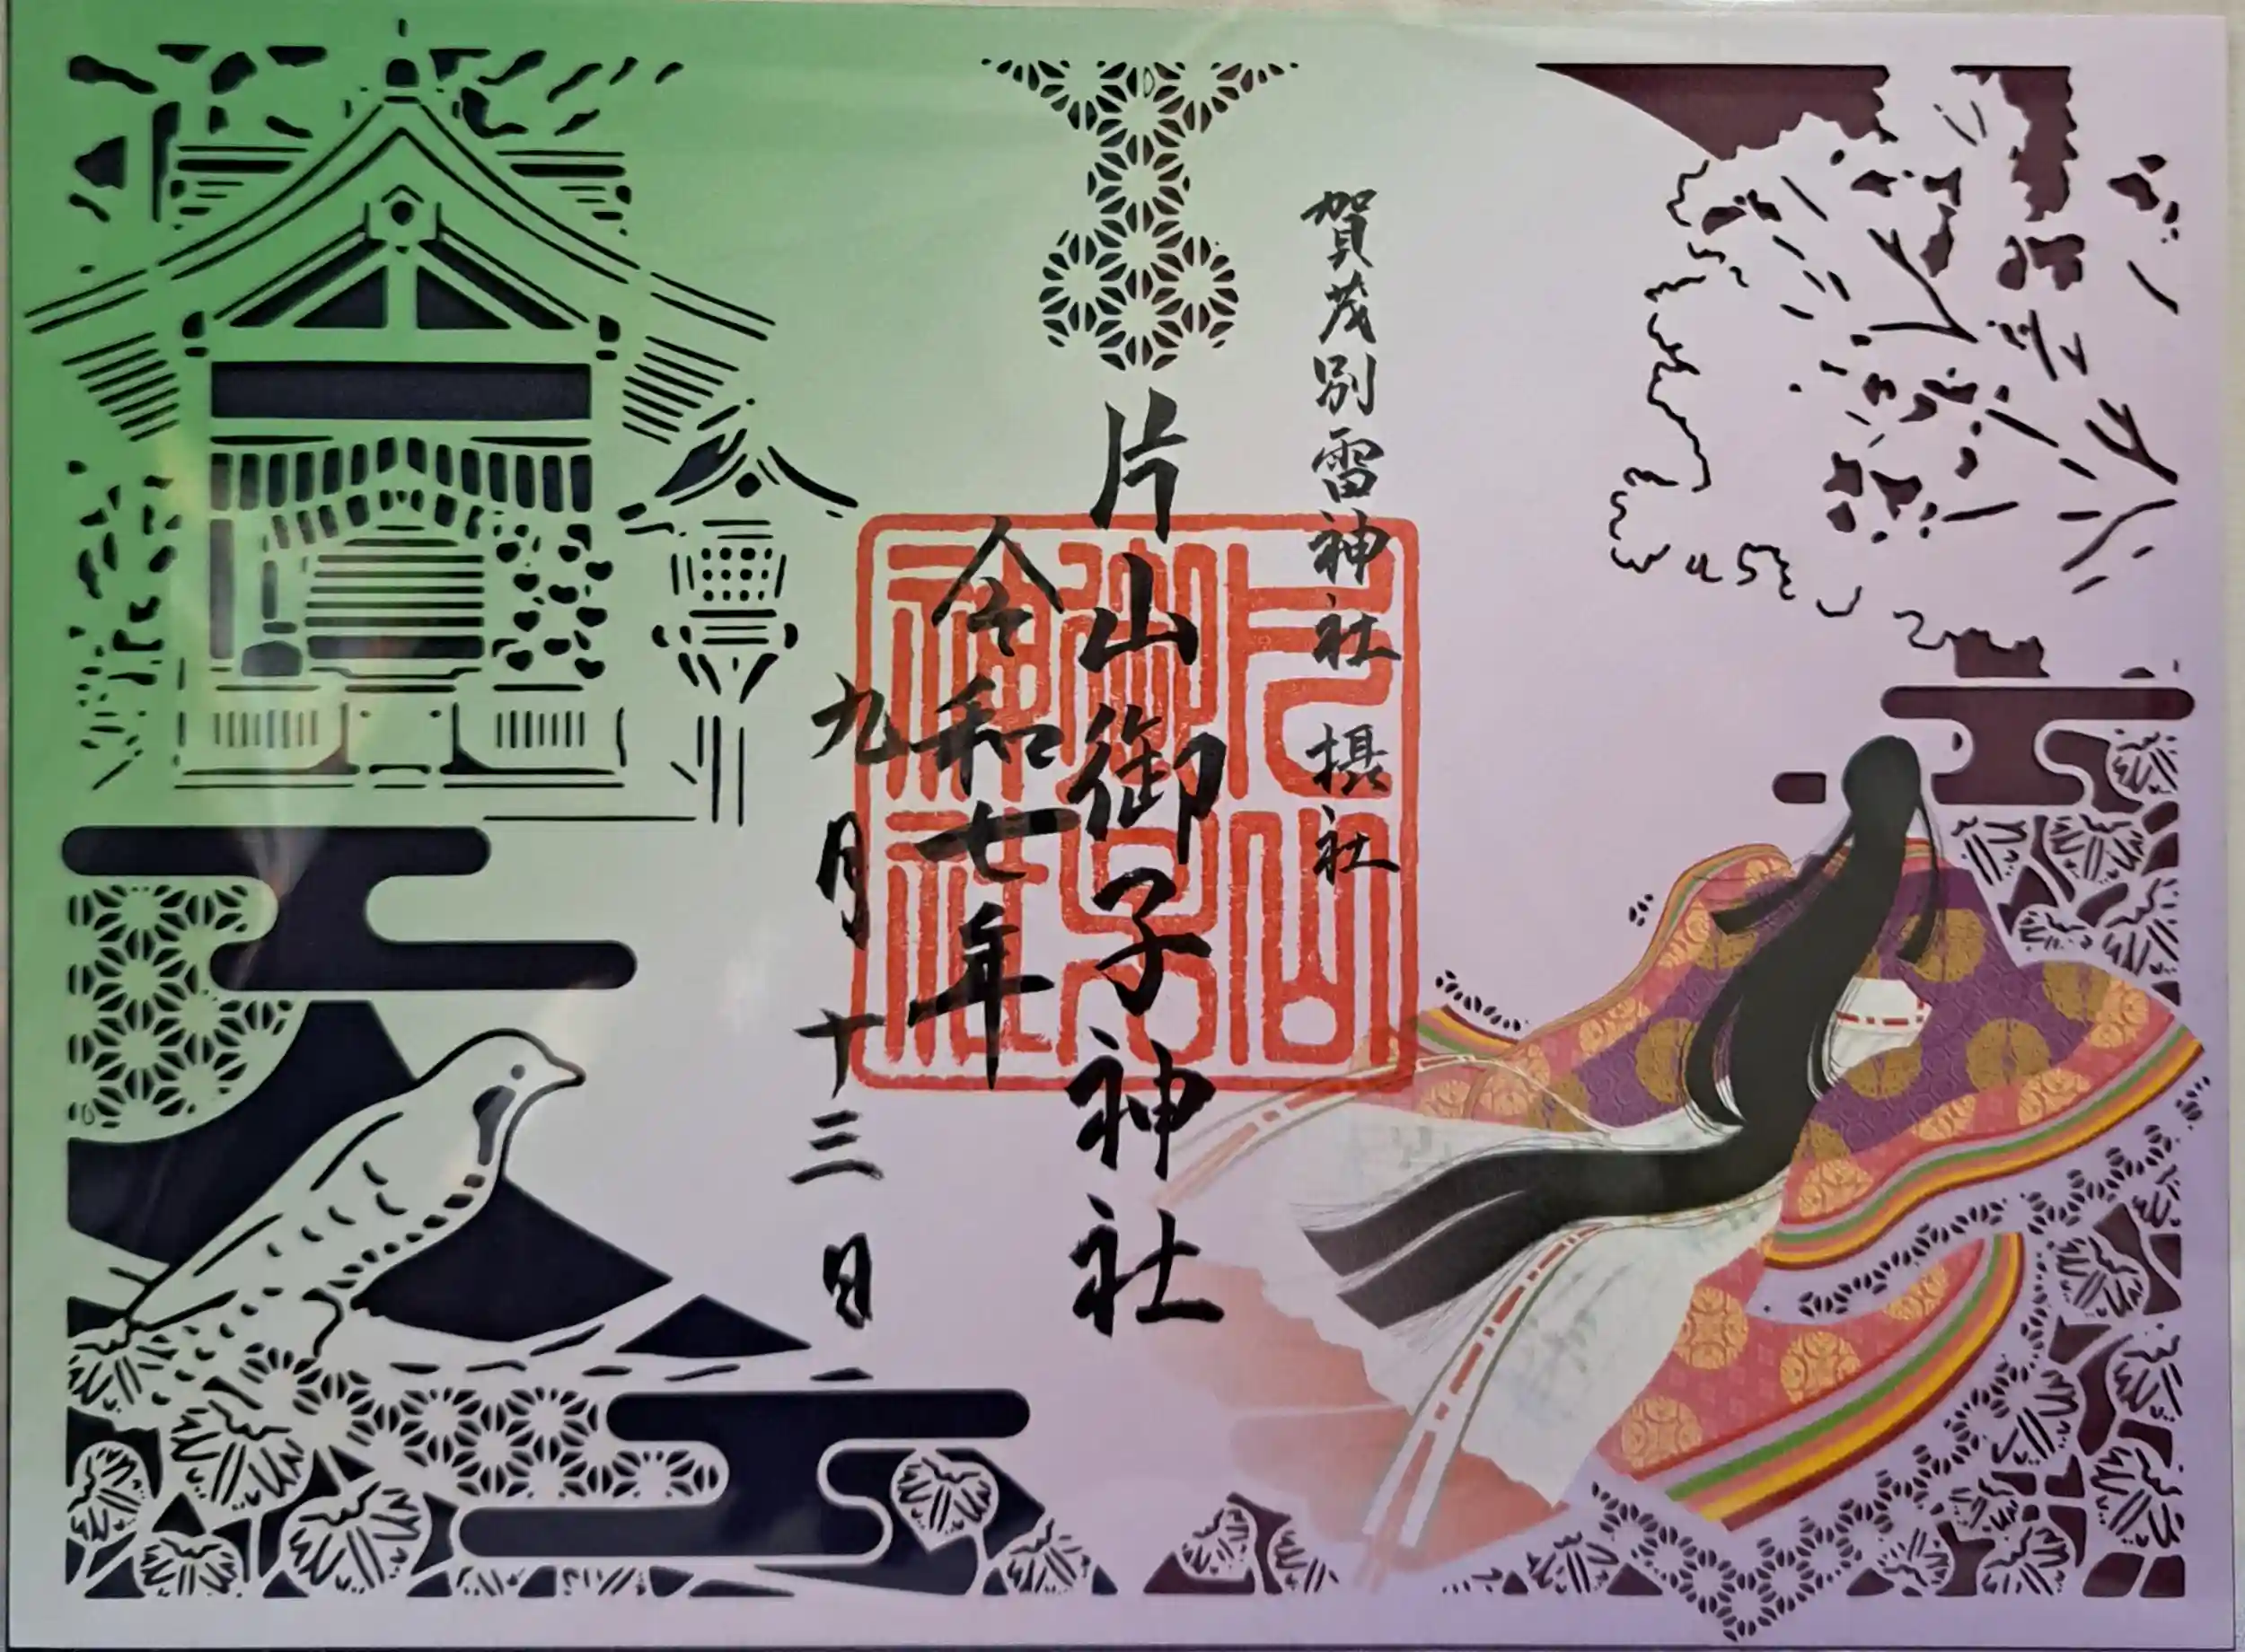 賀茂別雷神社 摂社
片山御子神社
令和七年
九月十三日
片山御子神社